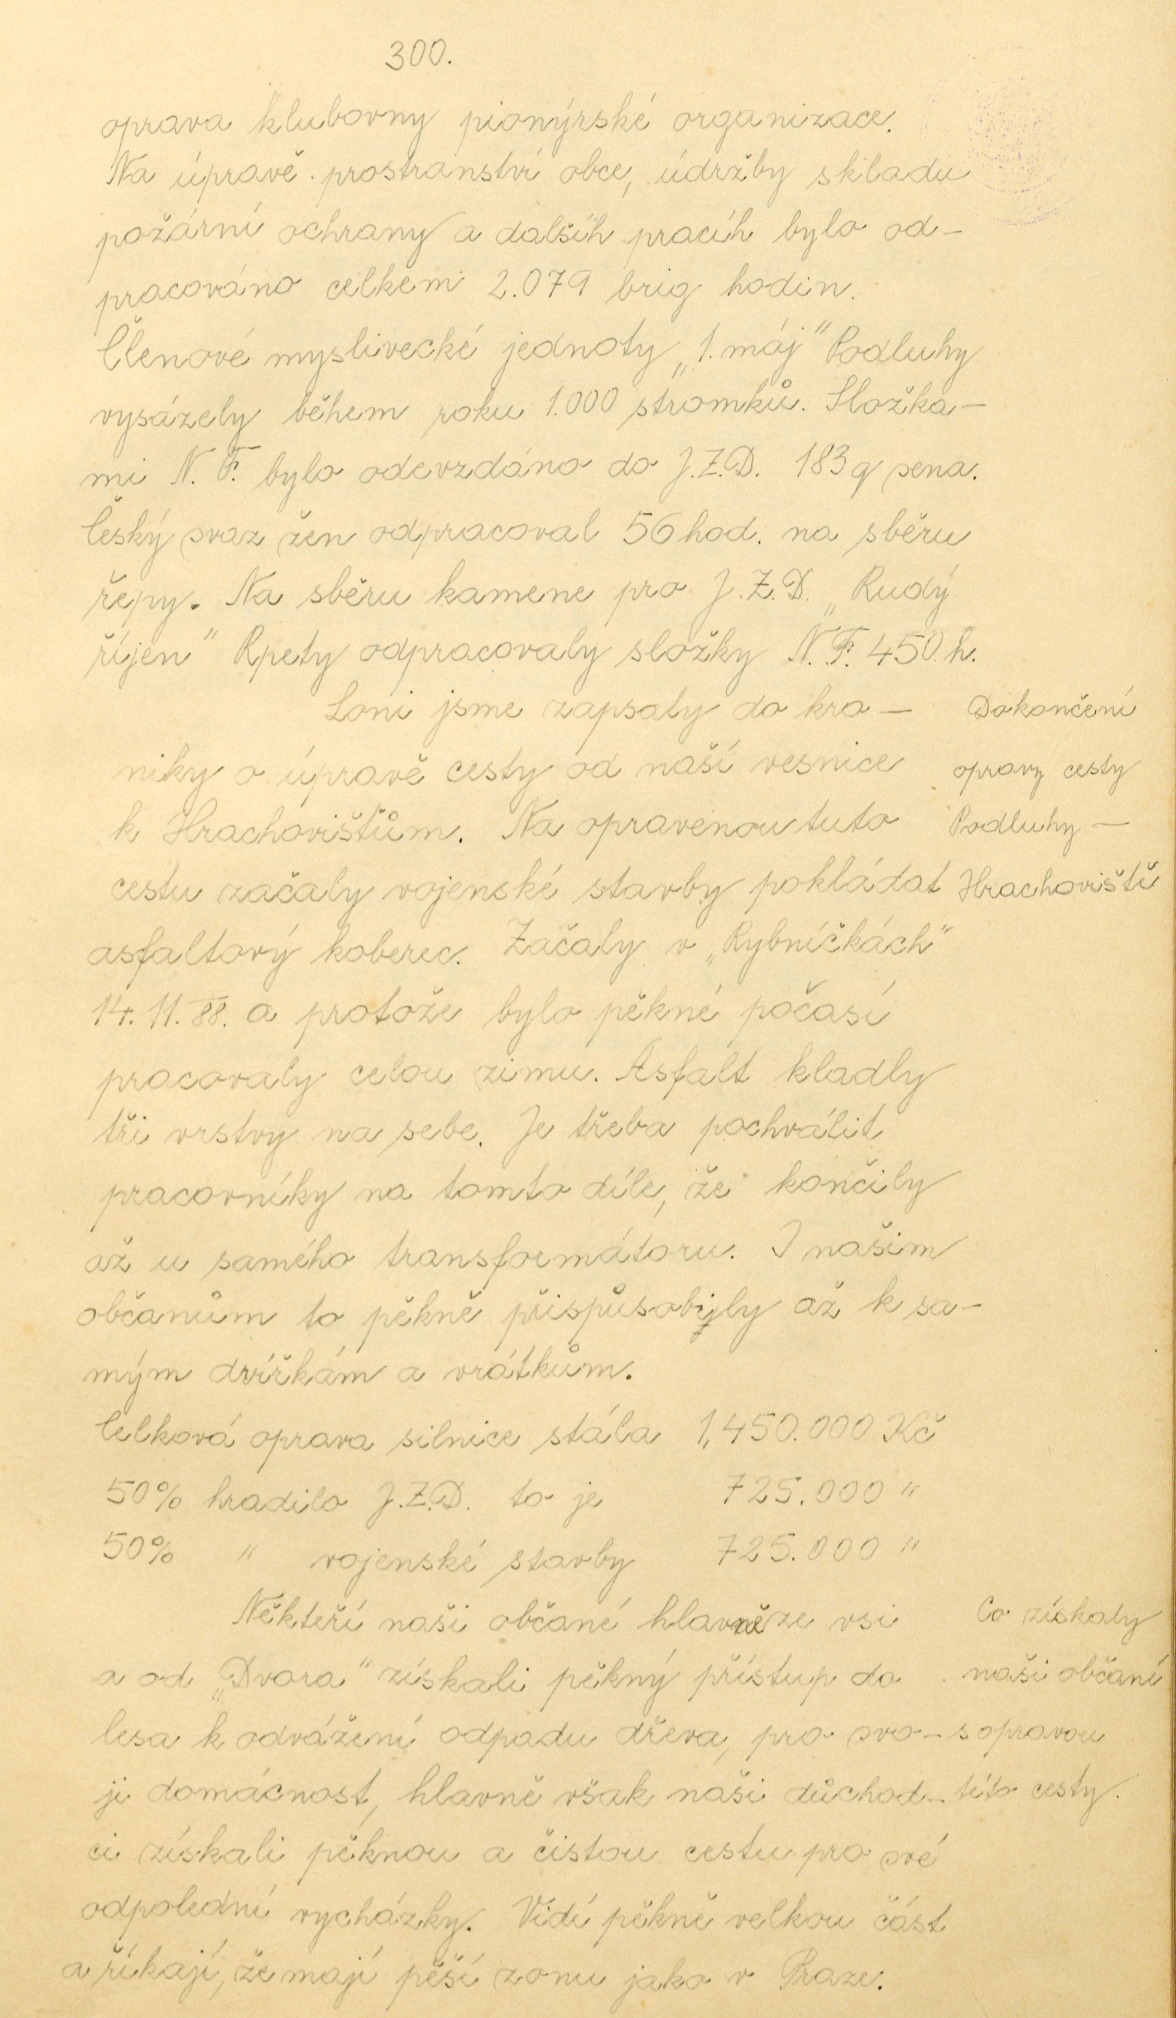 300.
oprava klubovny pionýrské organizace.
Na úpravě prostranství obce, údržby skladu
požární ochrany a dalšíh pracíh bylo od-
pracováno celkem 2.079 brig hodin.
Členové myslivecké jednoty „1. máj" Podluhy
vysázely během roku 1.000 stromků. Složka-
mi N. F. bylo odevzdáno do J.Z.D. 183 q sena.
Český svaz žen odpracoval 56 hod. na sběru
řepy. Na sběru kamene pro J.Z.D. „Rudý
říjen" Rpety odpracovaly složky N.F. 450 h.
Loni jsme zapsaly do kro-
niky o úpravě cesty od naší vesnice
k Hrachovišťům. Na opravenou tuto
cestu začaly vojenské stavby pokládat
asfaltový koberec. Začaly v „Rybníčkách"
14. 11. 88. a protože bylo pěkné počasí
pracovaly celou zimu. Asfalt kladly
tři vrstvy na sebe. Je třeba pochválit
pracovníky na tomto díle, že končily
až u samého transformátoru. I našim
občanům to pěkně přispůsobily až k sa-
mým dvířkám a vrátkům.
Celková oprava silnice stála 1,450.000 Kč
50% hradilo J.Z.D. to je 725.000 "
50% " vojenské stavby 725.000 "
Někteří naši občané hlavně ze vsi
a od „Dvora" získali pěkný přístup do
lesa k odvážení odpadu dřeva, pro svo-
ji domácnost, hlavně však naši důchod-
ci získali pěknou a čistou cestu pro své
odpolední vycházky. Vidí pěkně velkou část
a říkají, že mají pěší zonu jako v Praze.
Dokončení
opravy cesty
Podluhy -
Hrachoviště
Co získaly
naši občaní
s opravou
této cesty.